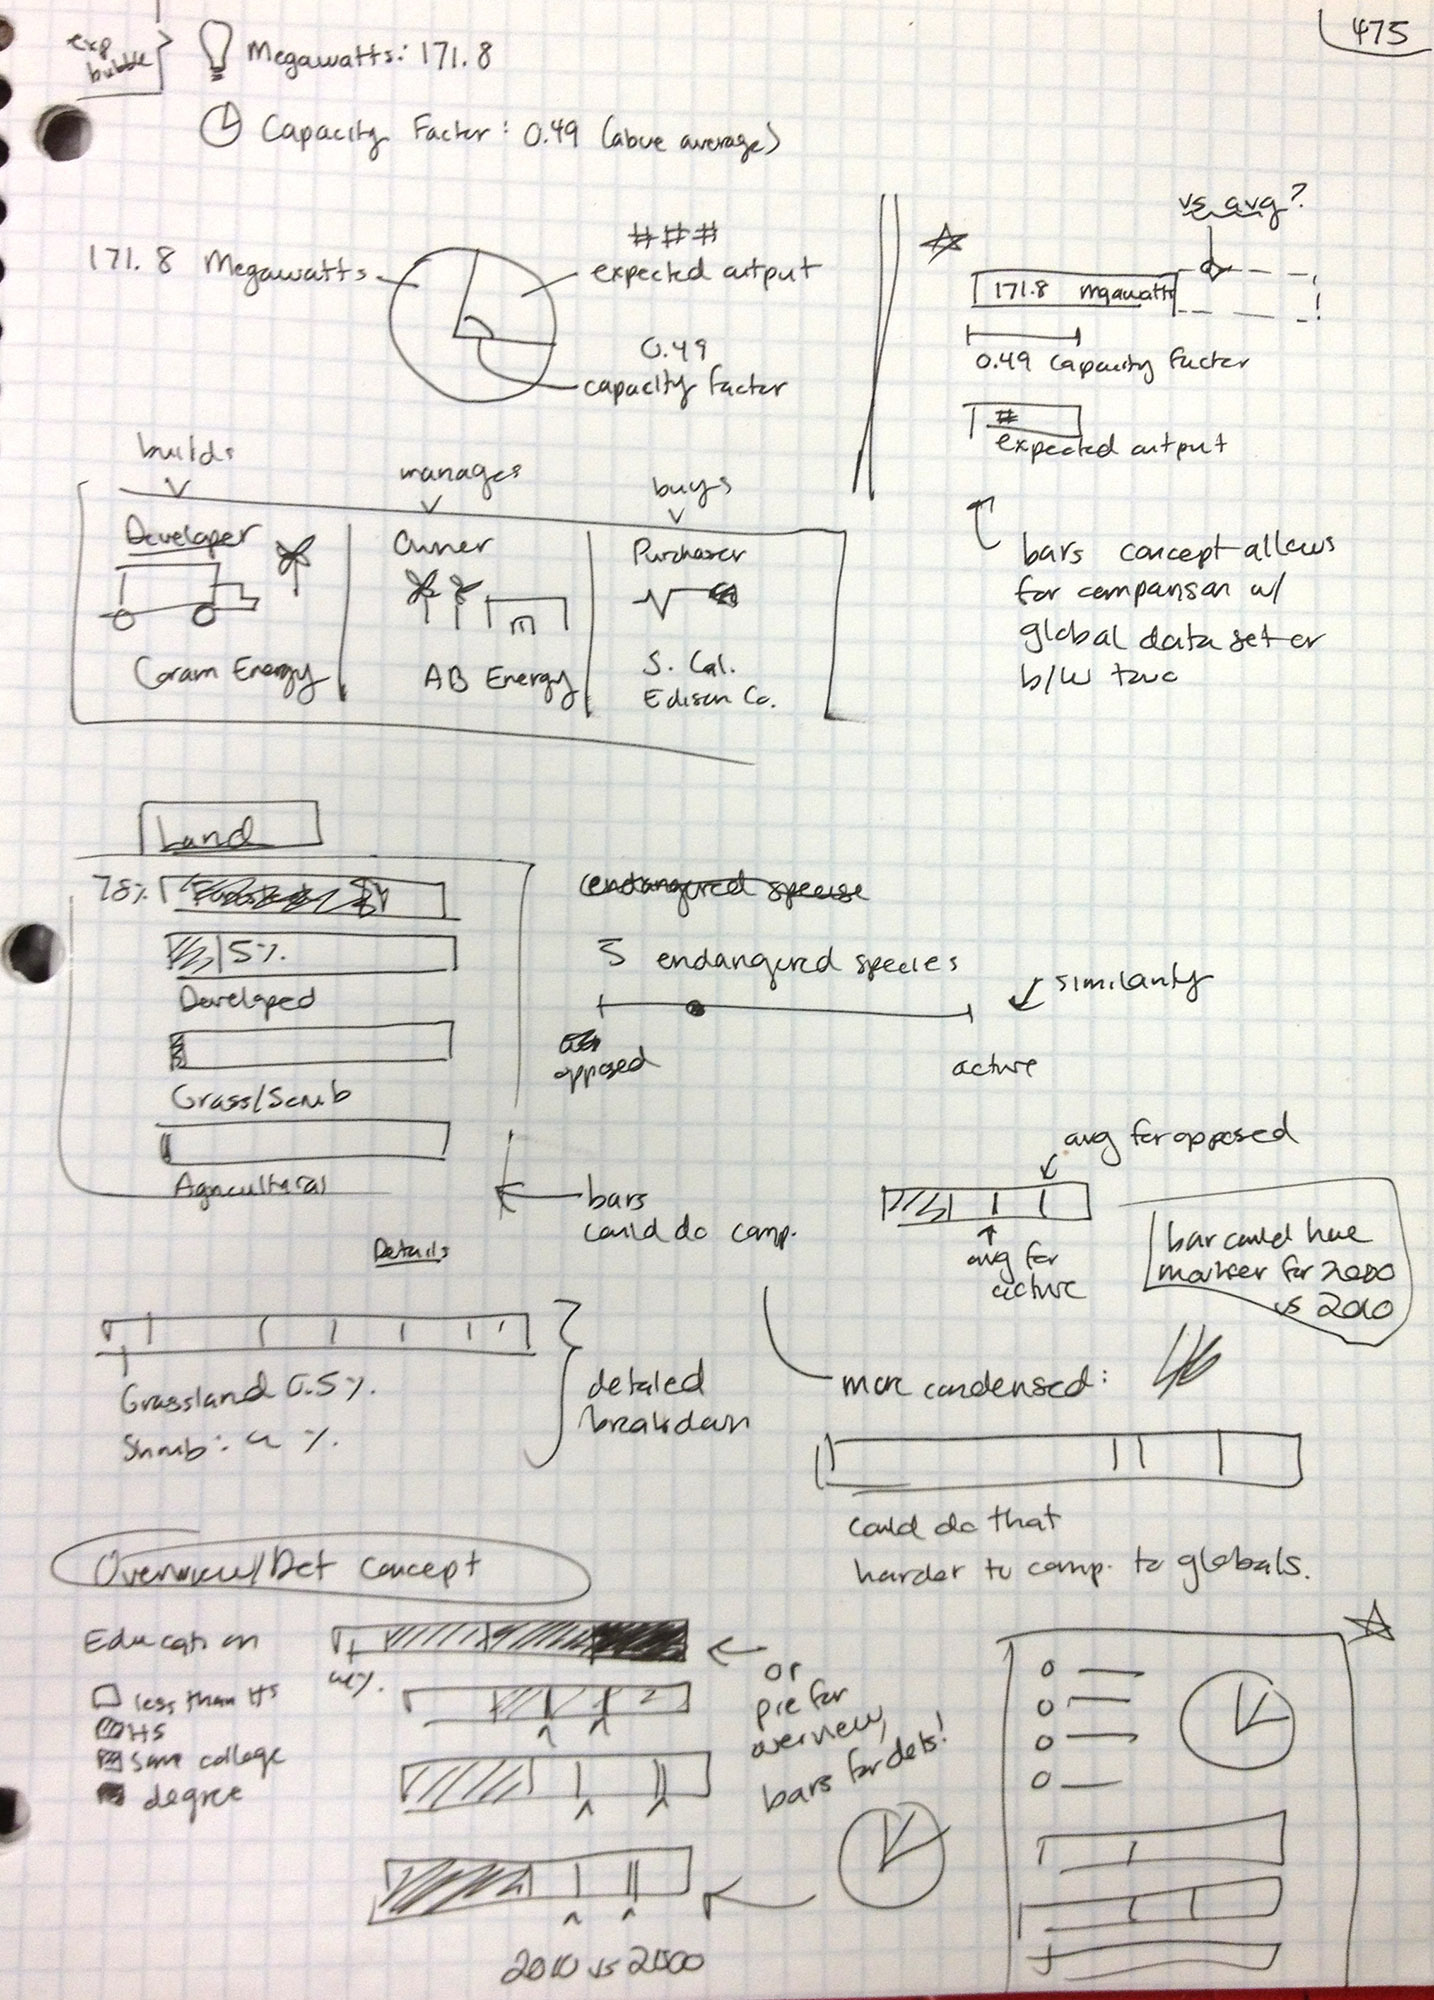 475
exp
bubble
Megawatts: 171.8
Capacity Factor: 0.49 (above average)
171.8 Megawatts
###
expected output
0.49
capacity factor
vs avg?
171.8 megawatts
0.49 capacity factor
#
expected output
bars concept allows
for comparison w/
global data set or
b/w two
builds
manages
buys
Developer
Owner
Purchaser
Coram Energy
AB Energy
S. Cal.
Edison Co.
Land
78%
5%
Developed
Grass/Scrub
Agricultural
endangured speciese
5 endangured species
similarity
opposed
active
bars
could do comp.
avg for opposed
avg for
active
bar could have
marker for 2000
vs 2010
Details
Grassland 0.5%
Shrub: 4%
detailed
breakdown
more condensed:
could do that
harder to comp. to globals.
Overview/Det concept
Education
less than HS
HS
some college
degree
or
pie for
overview,
bars for dets!
2010 vs 2000